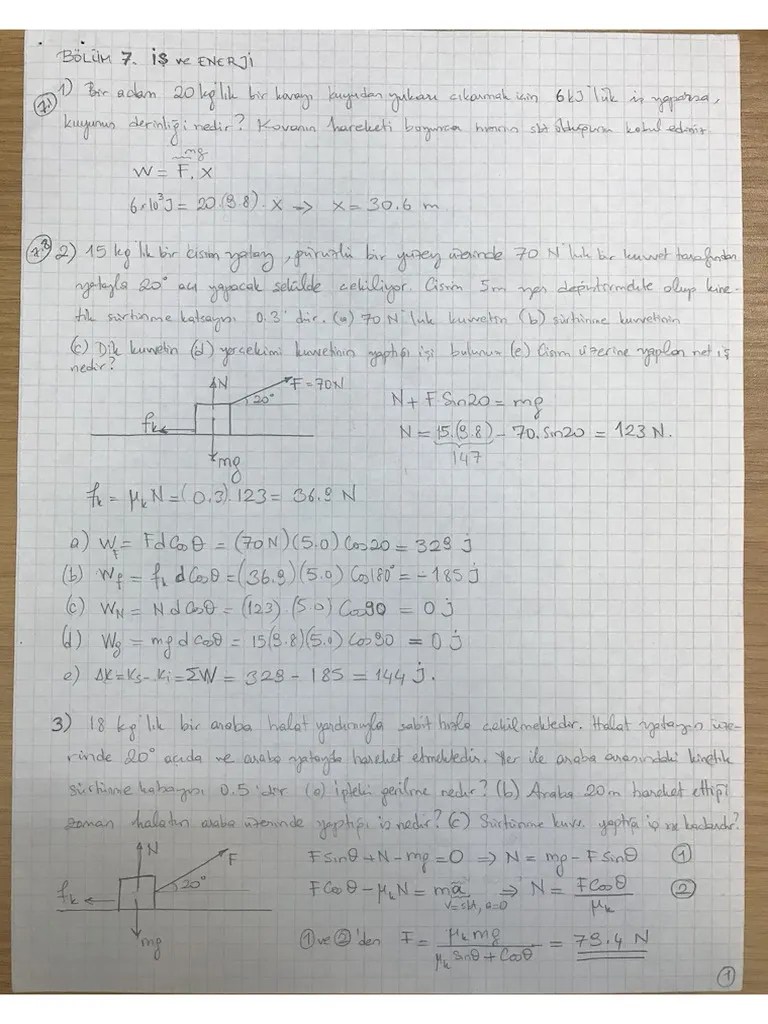 BÖLÜM 7. İŞ ve ENERJİ
7.1
1) Bir adam 20 kg'lık bir kovayı kuyudan yukarı çıkarmak için 6kJ'lük iş yaparsa,
kuyunun derinliği nedir? Kovanın hareketi boyunca hızının sbt olduğunu kabul ediniz
mg
W = F. X
6×10³J = 20.(9.8).X → X = 30.6 m
7.3
2) 15 kg'lık bir cisim yatay, pürüzlü bir yüzey üzerinde 70 N'luk bir kuvvet tarafından
yatayla 20° açı yapacak şekilde çekiliyor. Cisim 5m yer değiştirmekte olup kine-
tik sürtünme katsayısı 0.3'dür. (a) 70N'luk kuvvetin (b) sürtünme kuvvetinin
(c) Dik kuvvetin (d) yerçekimi kuvvetinin yaptığı işi bulunuz (e) Cisim üzerine yapılan net iş
nedir?
N F=70N
20°
fk
mg
N + F Sin20 = mg
N = 15.(9.8) - 70.Sin20 = 123 N.
147
fk = μkN = (0.3).123 = 36.9 N
a) WF = FdCosθ = (70N)(5.0) Cos20 = 329 j
(b) Wf = fk dCosθ = (36.9)(5.0) Cos180° = -185 j
(c) WN = NdCosθ = (123).(5.0) Cos90 = 0 j
(d) Wg = mgdcosθ = 15(9.8)(5.0) Cos90 = 0 j
e) ΔK = Ks - Ki = ΣW = 329 - 185 = 144 j.
3) 18 kg'lik bir araba halat yardımıyla sabit hızla çekilmektedir. Halat yatayın üze-
rinde 20° açıda ve araba yatayda hareket etmektedir. Yer ile araba arasındaki kinetik
sürtünme katsayısı 0.5'dir (a) İpteki gerilme nedir? (b) Araba 20m hareket ettiği
zaman halatın araba üzerinde yaptığı iş nedir? (c) Sürtünme kuvv. yaptığı iş ne kadardır?
N F
20°
fk
mg
FSinθ + N - mg = 0 ⇒ N = mg - FSinθ ①
FCosθ - μkN = ma ⇒ N = FCosθ / μk ②
V=sbt, a=0
① ve ②'den F = μk mg / μk Sinθ + Cosθ = 79.4 N
1